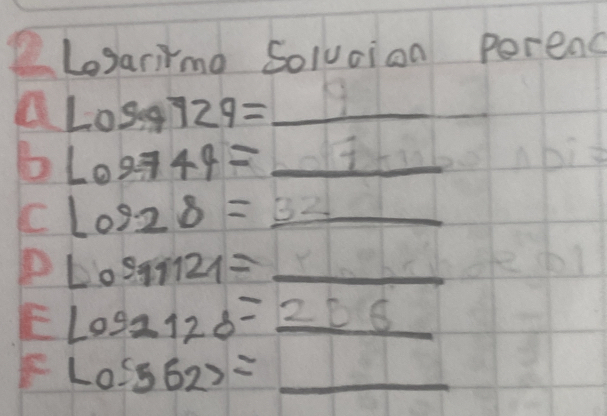 2 Logaritmo Solucion Potenc
a Log9 729 = 9
b Log7 49 = 7
C Log2 8 = 32
D Log11 121 =
E Log2 128 = 206
F Log5 625 =